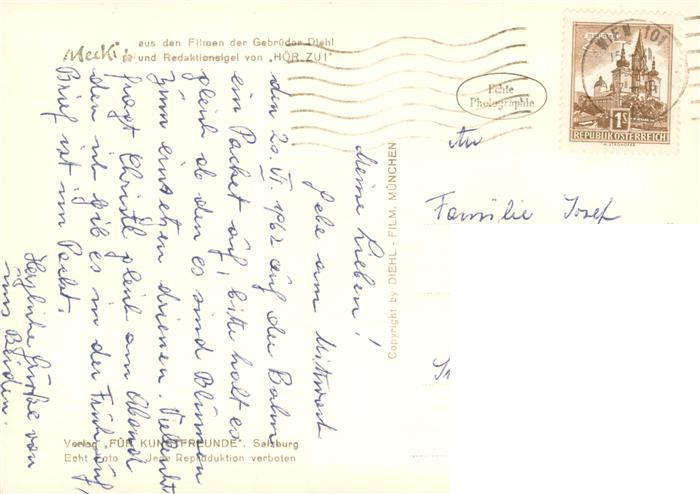 Mecki aus den Filmen der Gebrüder Diehl
und Redaktionsigel von „HÖR ZU!"
Echte
Photographie
WIEN 101
1S
REPUBLIK ÖSTERREICH
An
Familie Josef
Copyright by DIEHL - FILM, MÜNCHEN
Meine Lieben!
Gebe am Mittwoch
den 20. VI. 1962 auf der Bahn
ein Packet auf, bitte holt es
gleich ab den es sind Blumen
zum einsetzen drienen. Vielleicht
fragt Christl gleich am Abend
den ich gib es in der Früh auf,
Brief ist im Packet.
Herzliche Grüße von
uns Beiden.
Verlag „FÜR KUNSTFREUNDE", Salzburg
Echt Foto Jede Reproduktion verboten